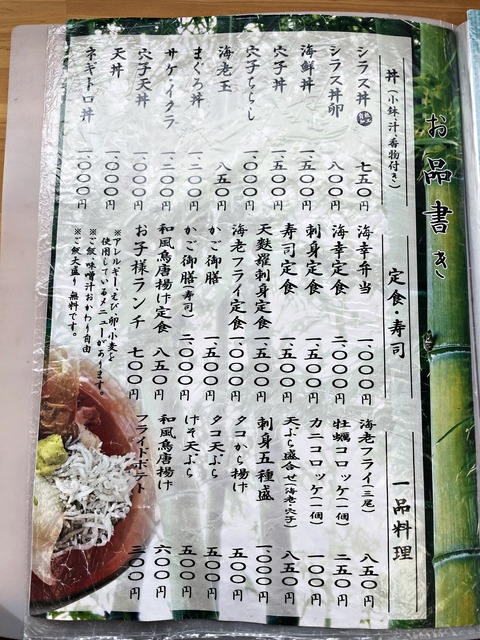 お品書き
丼(小鉢、汁、香物付き)
シラス丼 七五〇円
シラス丼卵 八〇〇円
海鮮丼 一、五〇〇円
穴子丼 一、五〇〇円
穴子ちらし 一、〇〇〇円
海老玉 八五〇円
まぐろ丼 一、二〇〇円
サケ・イクラ 一、二〇〇円
穴子天丼 一、〇〇〇円
天丼 一、〇〇〇円
ネギトロ丼 一、〇〇〇円
定食・寿司
海幸弁当 一、〇〇〇円
海幸定食 二、〇〇〇円
刺身定食 一、五〇〇円
寿司定食 一、五〇〇円
天麩羅刺身定食 一、五〇〇円
海老フライ定食 一、〇〇〇円
かご御膳 一、五〇〇円
かご御膳(寿司) 二、〇〇〇円
和風鳥唐揚げ定食 八五〇円
お子様ランチ 七〇〇円
※アレルギー、えび、卵、小麦を
使用しているメニューがあります。
※ご飯、味噌汁おかわり自由
※ご飯大盛り 無料です。
一品料理
海老フライ(三尾) 八五〇円
牡蠣コロッケ(一個) 二五〇円
カニコロッケ(一個) 一〇〇円
天ぷら盛合せ(海老・穴子) 八五〇円
刺身五種盛 一、〇〇〇円
タコから揚げ 五〇〇円
タコ天ぷら 五〇〇円
げそ天ぷら 五〇〇円
和風鳥唐揚げ 六〇〇円
フライドポテト 三〇〇円